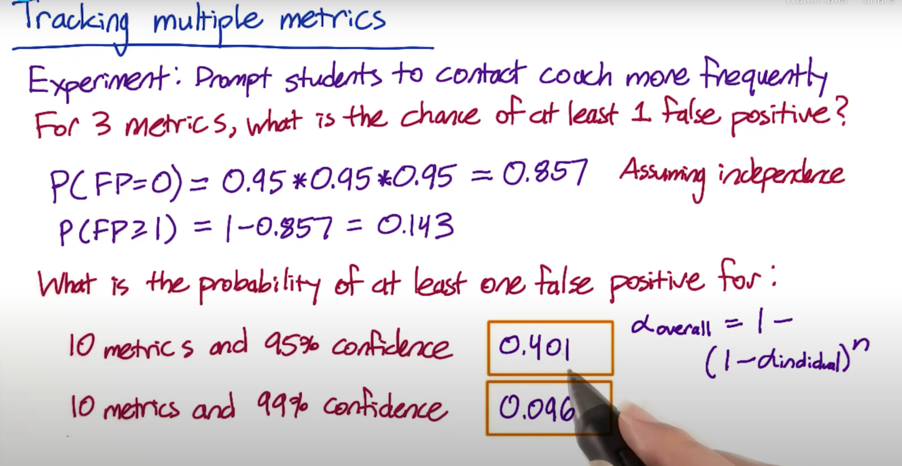 Tracking multiple metrics
Experiment: Prompt students to contact coach more frequently
For 3 metrics, what is the chance of at least 1 false positive?
P(FP=0) = 0.95*0.95*0.95 = 0.857 Assuming independence
P(FP≥1) = 1-0.857 = 0.143
What is the probability of at least one false positive for:
10 metrics and 95% confidence 0.401
10 metrics and 99% confidence 0.096
αoverall = 1-
(1-αindividual)ⁿ